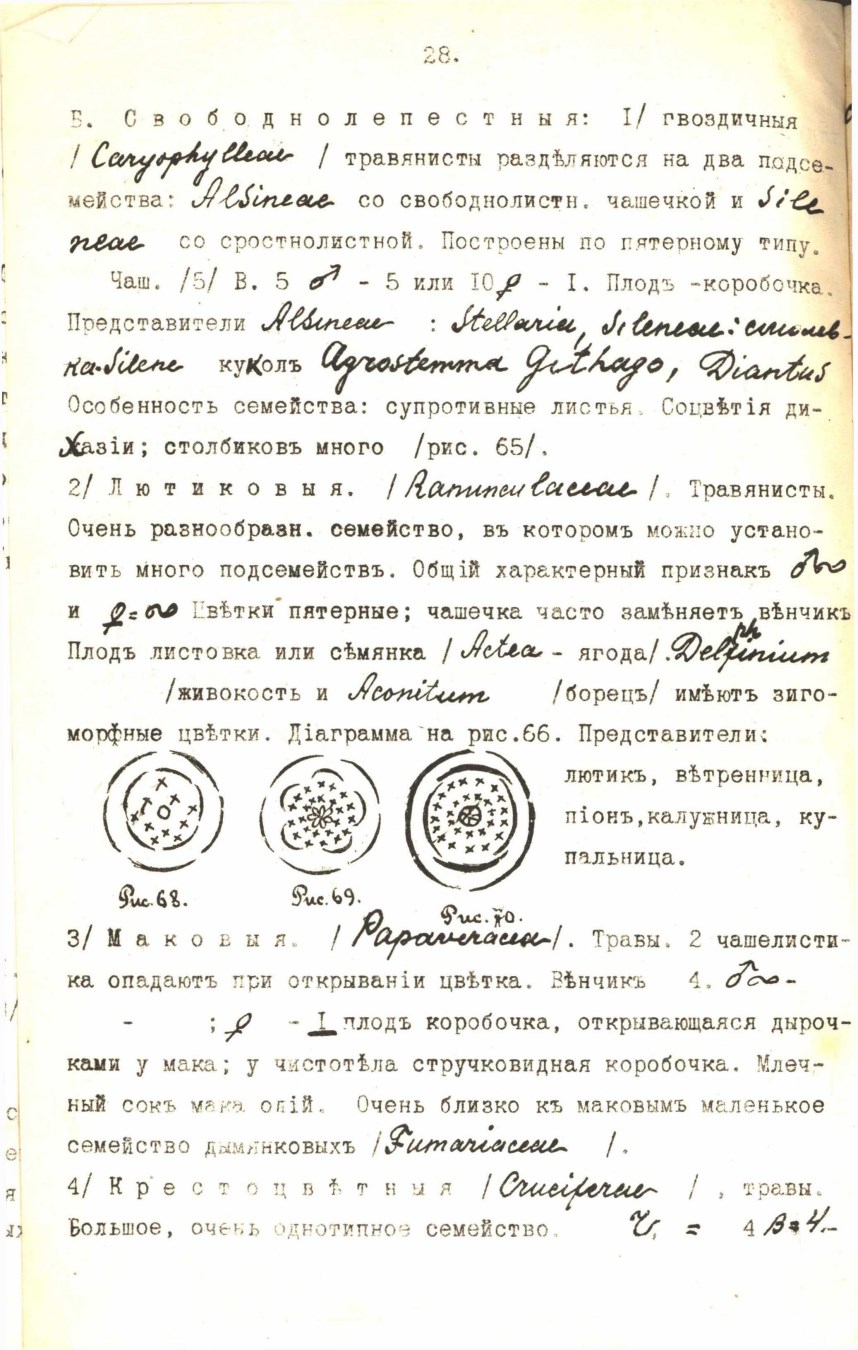 28.
Б. С в о б о д н о л е п е с т н ы я: I/ гвоздичныя
/ Caryophylleae / травянисты раздѣляются на два подсе-
мейства: Alsineae со свободнолистн. чашечкой и Sile
neae со сростнолистной. Построены по пятерному типу.
Чаш. /5/ В. 5 ♂ - 5 или I0 ♀ - I. Плодъ -коробочка.
Представители Alsineae : Stellaria, Sileneae: смолев-
ка-Silene куколь Agrostemma Githago, Diantus
Особенность семейства: супротивные листья. Соцвѣтія ди-
хазіи; столбиковъ много /рис. 65/.
2/ Л ю т и к о в ы я. /Ranunculaceae/. Травянисты.
Очень разнообразн. семейство, въ которомъ можно устано-
вить много подсемействъ. Общій характерный признакъ ♂∞
и ♀=∞ Цвѣтки пятерные; чашечка часто замѣняетъ вѣнчикъ
Плодъ листовка или сѣмянка / Actea - ягода/. Delphinium
/живокость и Aconitum /борецъ/ имѣютъ зиго-
морфные цвѣтки. Діаграмма на рис.66. Представители:
лютикъ, вѣтренница,
піонъ,калужница, ку-
пальница.
Рис.68. Рис.69. Рис.70.
3/ М а к о в ы я. /Papaveraceae/. Травы. 2 чашелисти-
ка опадаютъ при открываніи цвѣтка. Вѣнчикъ 4. ♂∞ -
- ; ♀ - I плодъ коробочка, открывающаяся дыроч-
ками у мака; у чистотѣла стручковидная коробочка. Млеч-
ный сокъ мака опій. Очень близко къ маковымъ маленькое
семейство дымянковыхъ /Fumariaceae /.
4/ К р е с т о ц в ѣ т н ы я /Cruciferae / , травы.
Большое, очень однотипное семейство. Ч. = 4 В=4.-